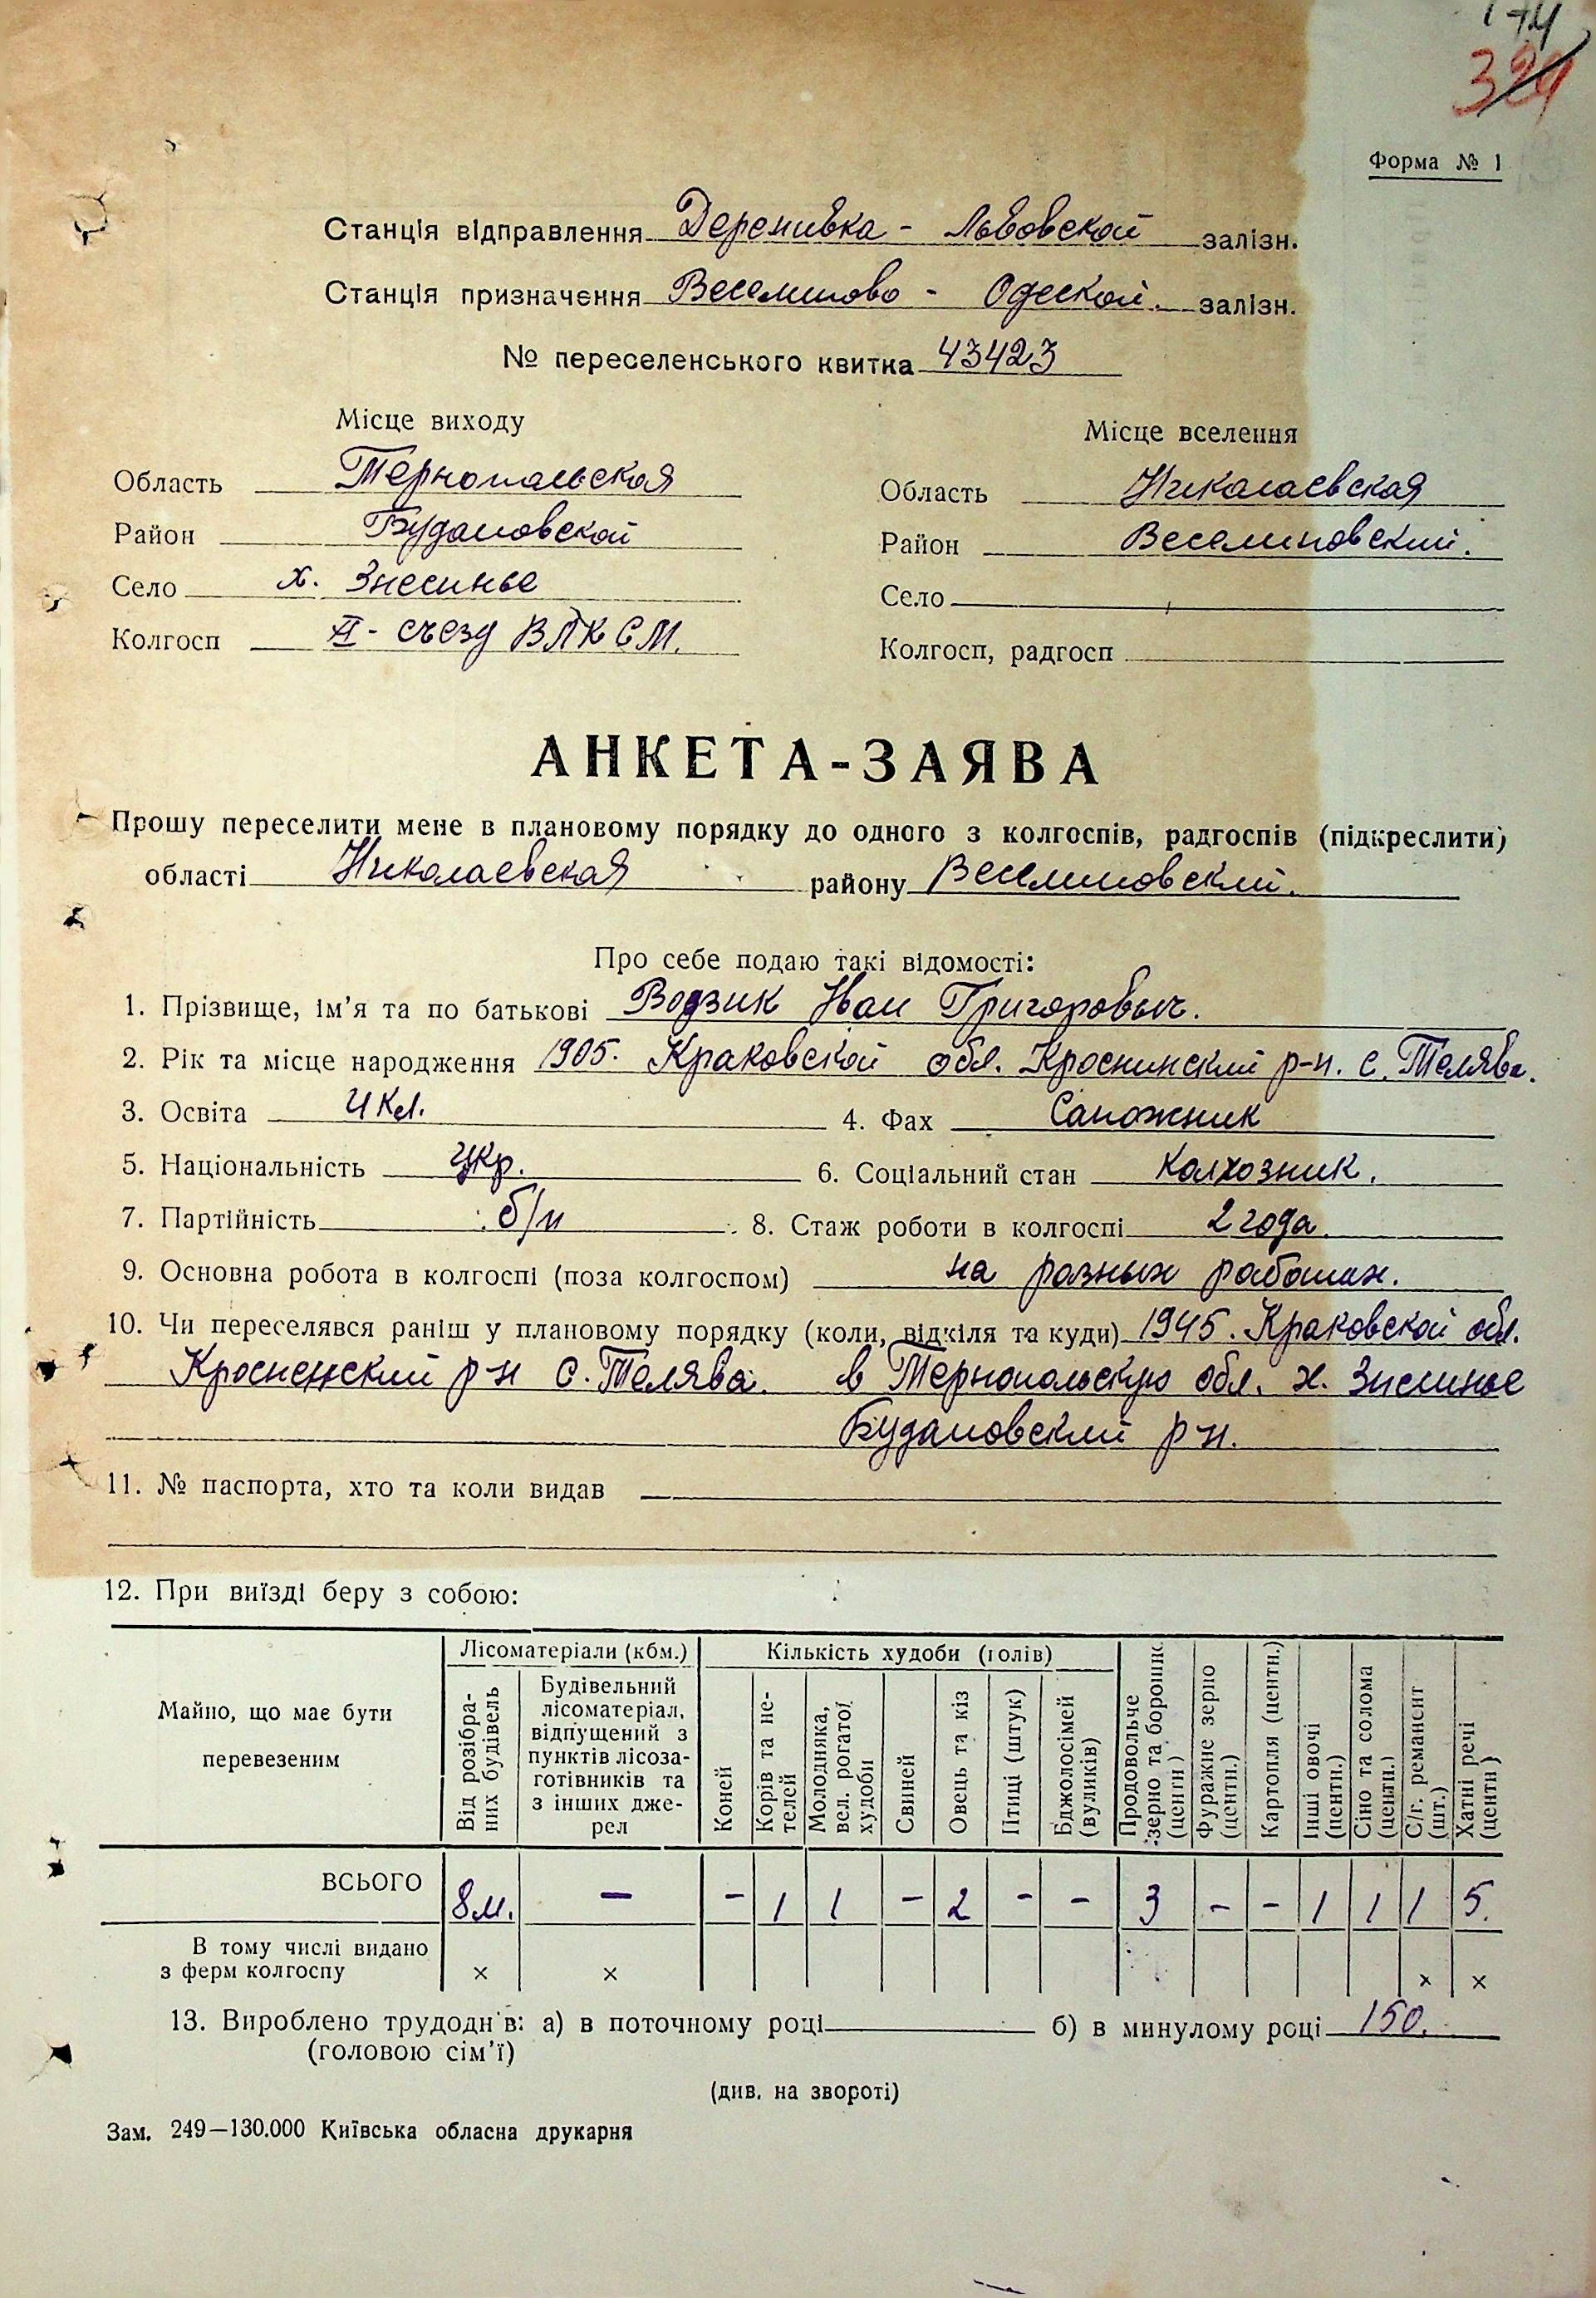 174
329
Форма № 1
Станція відправлення Деренивка - Львовской залізн.
Станція призначення Веселиново - Одеской. залізн.
№ переселенського квитка 43423
Місце виходу
Місце вселення
Область Тернопальская
Область Николаевская
Район Будановской
Район Веселиновский.
Село х. Знесинье
Село
Колгосп XI - съезд ВЛКСМ.
Колгосп, радгосп
АНКЕТА-ЗАЯВА
Прошу переселити мене в плановому порядку до одного з колгоспів, радгоспів (підкреслити)
області Николаевская району Веселиновский.
Про себе подаю такі відомості:
1. Прізвище, ім'я та по батькові Водзик Иван Григоровыч.
2. Рік та місце народження 1905. Краковской обл. Кроснинский р-н. с. Телява.
3. Освіта 4 кл. 4. Фах Сапожник
5. Національність укр. 6. Соціальний стан колхозник.
7. Партійність б/п 8. Стаж роботи в колгоспі 2 года.
9. Основна робота в колгоспі (поза колгоспом) на разных работах.
10. Чи переселявся раніш у плановому порядку (коли, відкіля та куди) 1945. Краковской обл.
Кросненский р-н с. Телява. в Тернопольскую обл. х. Знесинье
Будановский р-н.
11. № паспорта, хто та коли видав
12. При виїзді беру з собою:
Майно, що має бути перевезеним
Лісоматеріали (кбм.)
Від розібраних будівель
Будівельний лісоматеріал, відпущений з пунктів лісозаготівників та з інших джерел
Кількість худоби (голів)
Коней
Корів та нетелей
Молодняка, вел. рогатої худоби
Свиней
Овець та кіз
Птиці (штук)
Бджолосімей (вуликів)
Продовольче зерно та борошно (центн)
Фуражне зерно (центн.)
Картопля (центн.)
Інші овочі (центн.)
Сіно та солома (центн.)
С/г. реманент (шт.)
Хатні речі (центн)
ВСЬОГО 8 м. — - 1 1 - 2 - - 3 - - 1 1 1 5.
В тому числі видано
з ферм колгоспу × × × ×
13. Вироблено трудоднів: а) в поточному році б) в минулому році 150.
(головою сім'ї)
(див. на звороті)
Зам. 249—130.000 Київська обласна друкарня